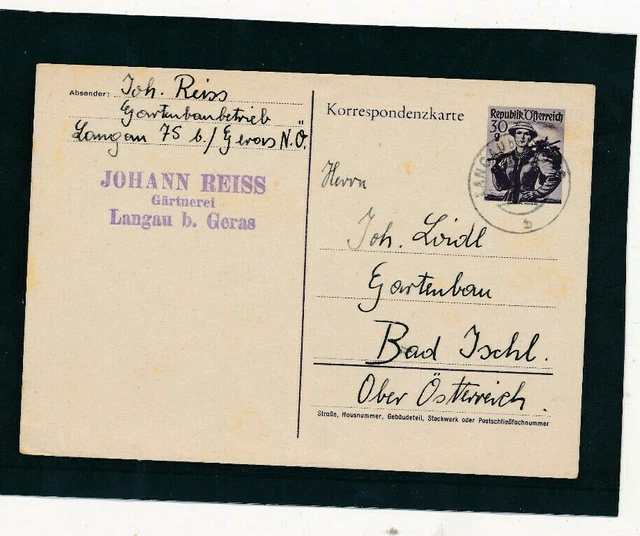 Absender: Joh. Reiss
Gartenbaubetrieb
Langau 75 b./Geras N.Ö.
JOHANN REISS
Gärtnerei
Langau b. Geras
Korrespondenzkarte
Republik Österreich
30 g
LANGAU
b
Herrn
Joh. Loidl
Gartenbau
Bad Ischl.
Ober Österreich.
Straße, Hausnummer, Gebäudeteil, Stockwerk oder Postschließfachnummer